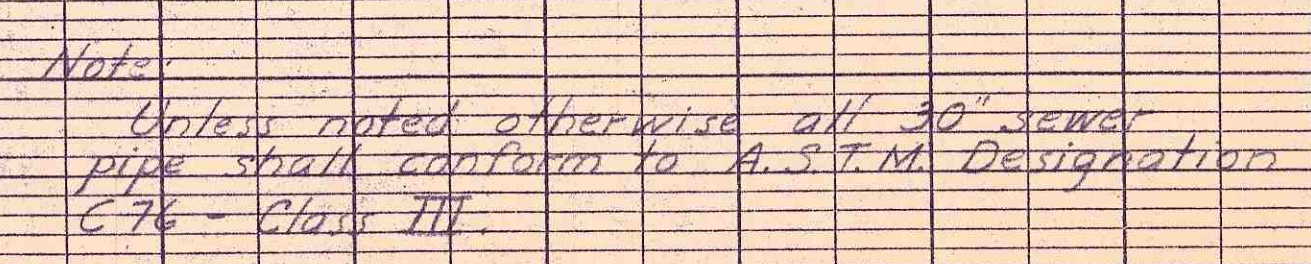 Note:
Unless noted otherwise all 30" sewer
pipe shall conform to A.S.T.M. Designation
C 76 - Class III.